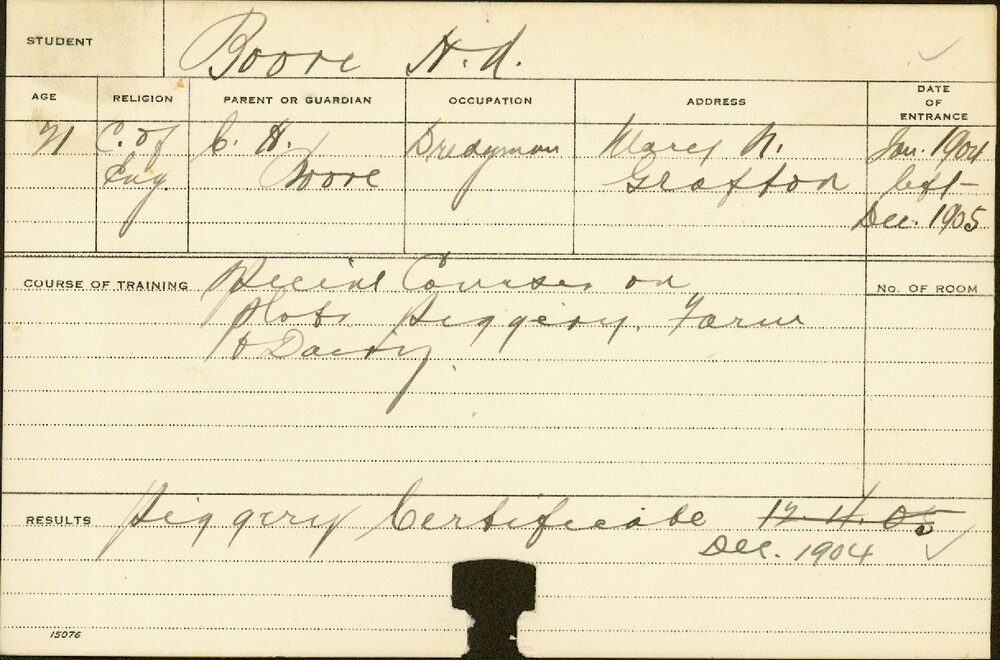 STUDENT Boore H. A.
AGE RELIGION PARENT OR GUARDIAN OCCUPATION ADDRESS DATE OF ENTRANCE
21 C. of C. H. Dredgman Mary St. Jan. 1904
Eng Boore Grafton left
Dec. 1905
COURSE OF TRAINING Special Course on No. OF ROOM
Plots Piggery, Farm
& Dairy.
RESULTS Piggery Certificate
Dec. 1904
15076